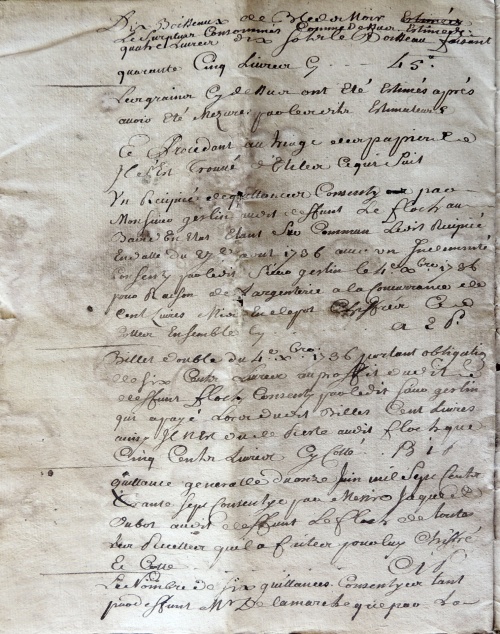 Dix Boisseaux de Bled Noir Estimés
Le surplus Consommés Comme Dessus Estimés
quatre Livres dix sols le Boisseau faisant
quarante Cinq Livres Cy 45#
Les grains Cy dessus ont Eté Estimés après
avoir Eté Mezurés par lesdits Estimateurs
Et Procedant au triage des papiers
Il s'Est Trouvé d'Etiler Ce qui Suit
Un Recipicé de quittances Consenty par
Monsieur gerlin audit deffunt Le floch au
Estant Sur Commun Ledit Recipicé
En datte du 27e avril 1736 avec un Indemnité
Consenty par ledit Sieur gerlin le 4e Xbre 1736
pour Raison de L'argenterie a la Concurrance de
Cent Livres Mise En depot Chiffré
Cottes Ensemble Cy a 2 p.
Billet double du 4e Xbre 1736 portant obligation
de six Cents Livres au proffit dudit
deffunt floch Consenty par ledit Sieur gerlin
qui a payé Lors dudit Billet Cent Livres
ainsy Il N'Est du de Reste audit floch que
Cinq Cents Livres Cy Cotté B 1 p
quittance generalle du onze Juin mil Sept Cents
trante Sept Consentye par Messire Jaques
Dubot audit deffunt Le floch de toute
Sa Recette qu'il a faite pour luy Chiffré
Et Cotté C 1 p
Le Nombre de Six quittances Consentyes tant
par deffunt Mr De Lamarche que par La